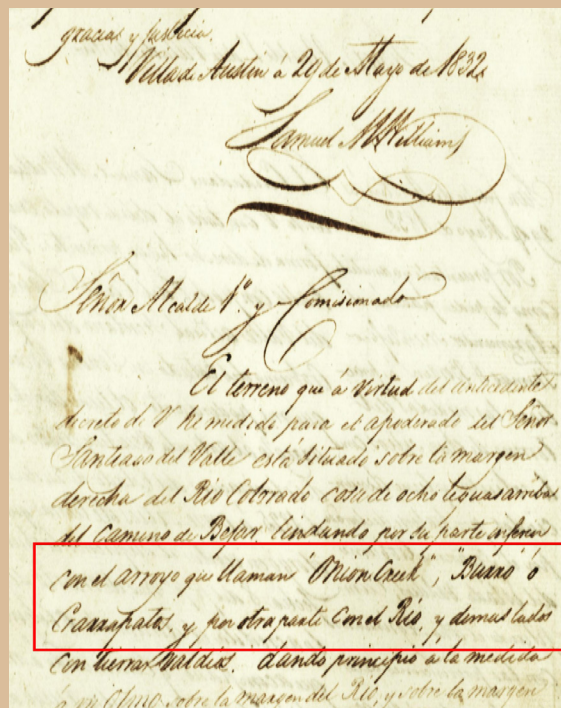 gracias y justicia.
Villa de Austin á 29 de Mayo de 1832
Samuel M Williams
Señor Alcalde 1º. y Comisionado
El terreno que á virtud del antecedente
decreto de V he medido para el apoderado del Señor
Santiago del Valle está situado sobre la margen
derecha del Rio Colorado cosa de ocho leguas arriba
del camino de Bejar, lindando por su parte inferior
con el arroyo que llaman "Onion Creek", "Burro" ó
Garrapatas, y por otra parte con el Rio, y demas lados
con tierras valdias. dando principio á la medida
sobre la margen del Rio, y sobre la margen